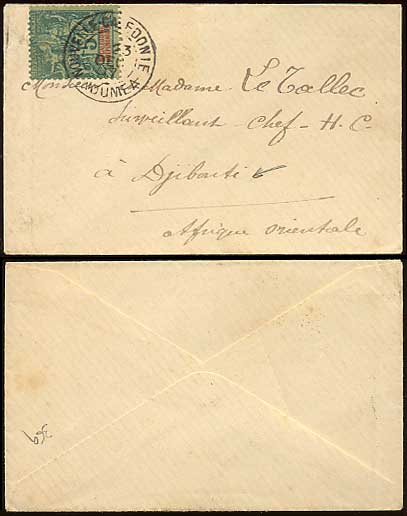 NOUVELLE CALEDONIE
23
NOUMEA
5
Monsieur Madame Le Tallec
Surveillant Chef - H. C.
à Djibouti
Afrique Orientale